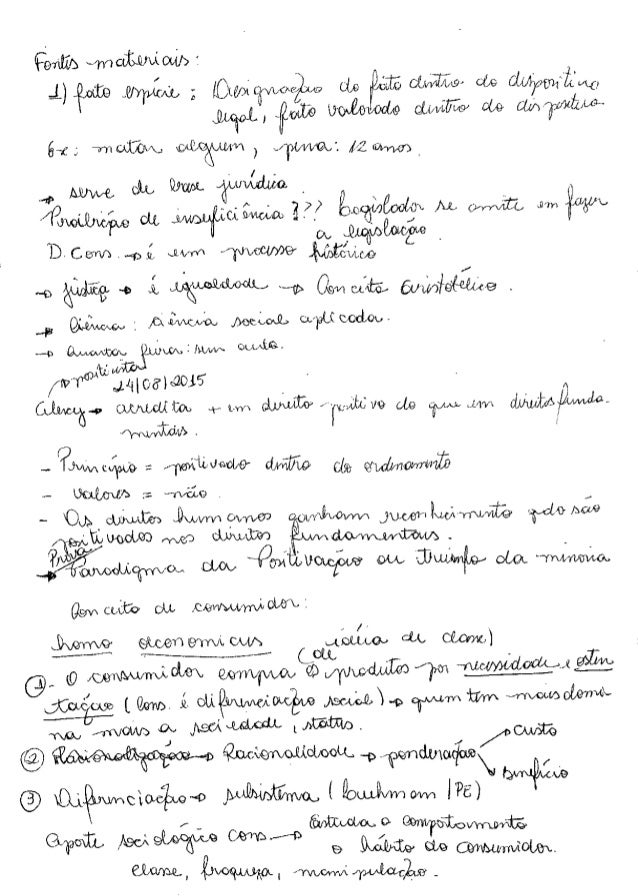 Fontes materiais:
1) fato espécie: Designação do fato dentro do dispositivo
legal, fato valorado dentro do dispositivo
Ex: matar alguem, pena: 12 anos.
→ serve de base jurídica
Proibição de insuficiência ??? Legislador se omite em fazer
a legislação
D. Cons. → é um processo histórico
→ justiça → é igualdade → Conceito Aristotélico.
→ Ciência: ciência social aplicada.
→ Quarta feira: sem aula.
→ positivista
24/08/2015
Alexy → acredita + em direito positivo do que em direitos funda-
mentais.
- Princípio = positivado dentro do ordenamento
- Valores = não
- Os direitos humanos ganham reconhecimento qdo são
positivados nos direitos fundamentais.
Prova
→ Paradigma da Positivação ou triunfo da minoria
Conceito de consumidor:
homo oeconomicus (ideia de classe)
de
1 - O consumidor compra os produtos por necessidade e osten
tação (cons. é diferenciação social) → quem tem mais domi
na mais a sociedade, status.
2 Racionalização → Racionalidade → ponderação → custo
→ benefício
3 Diferenciação → subsistema (Luehmam / PE)
Aporte sociológico cons. → Estuda o comportamento
o hábito do consumidor.
classe, fraqueza, manipulação.